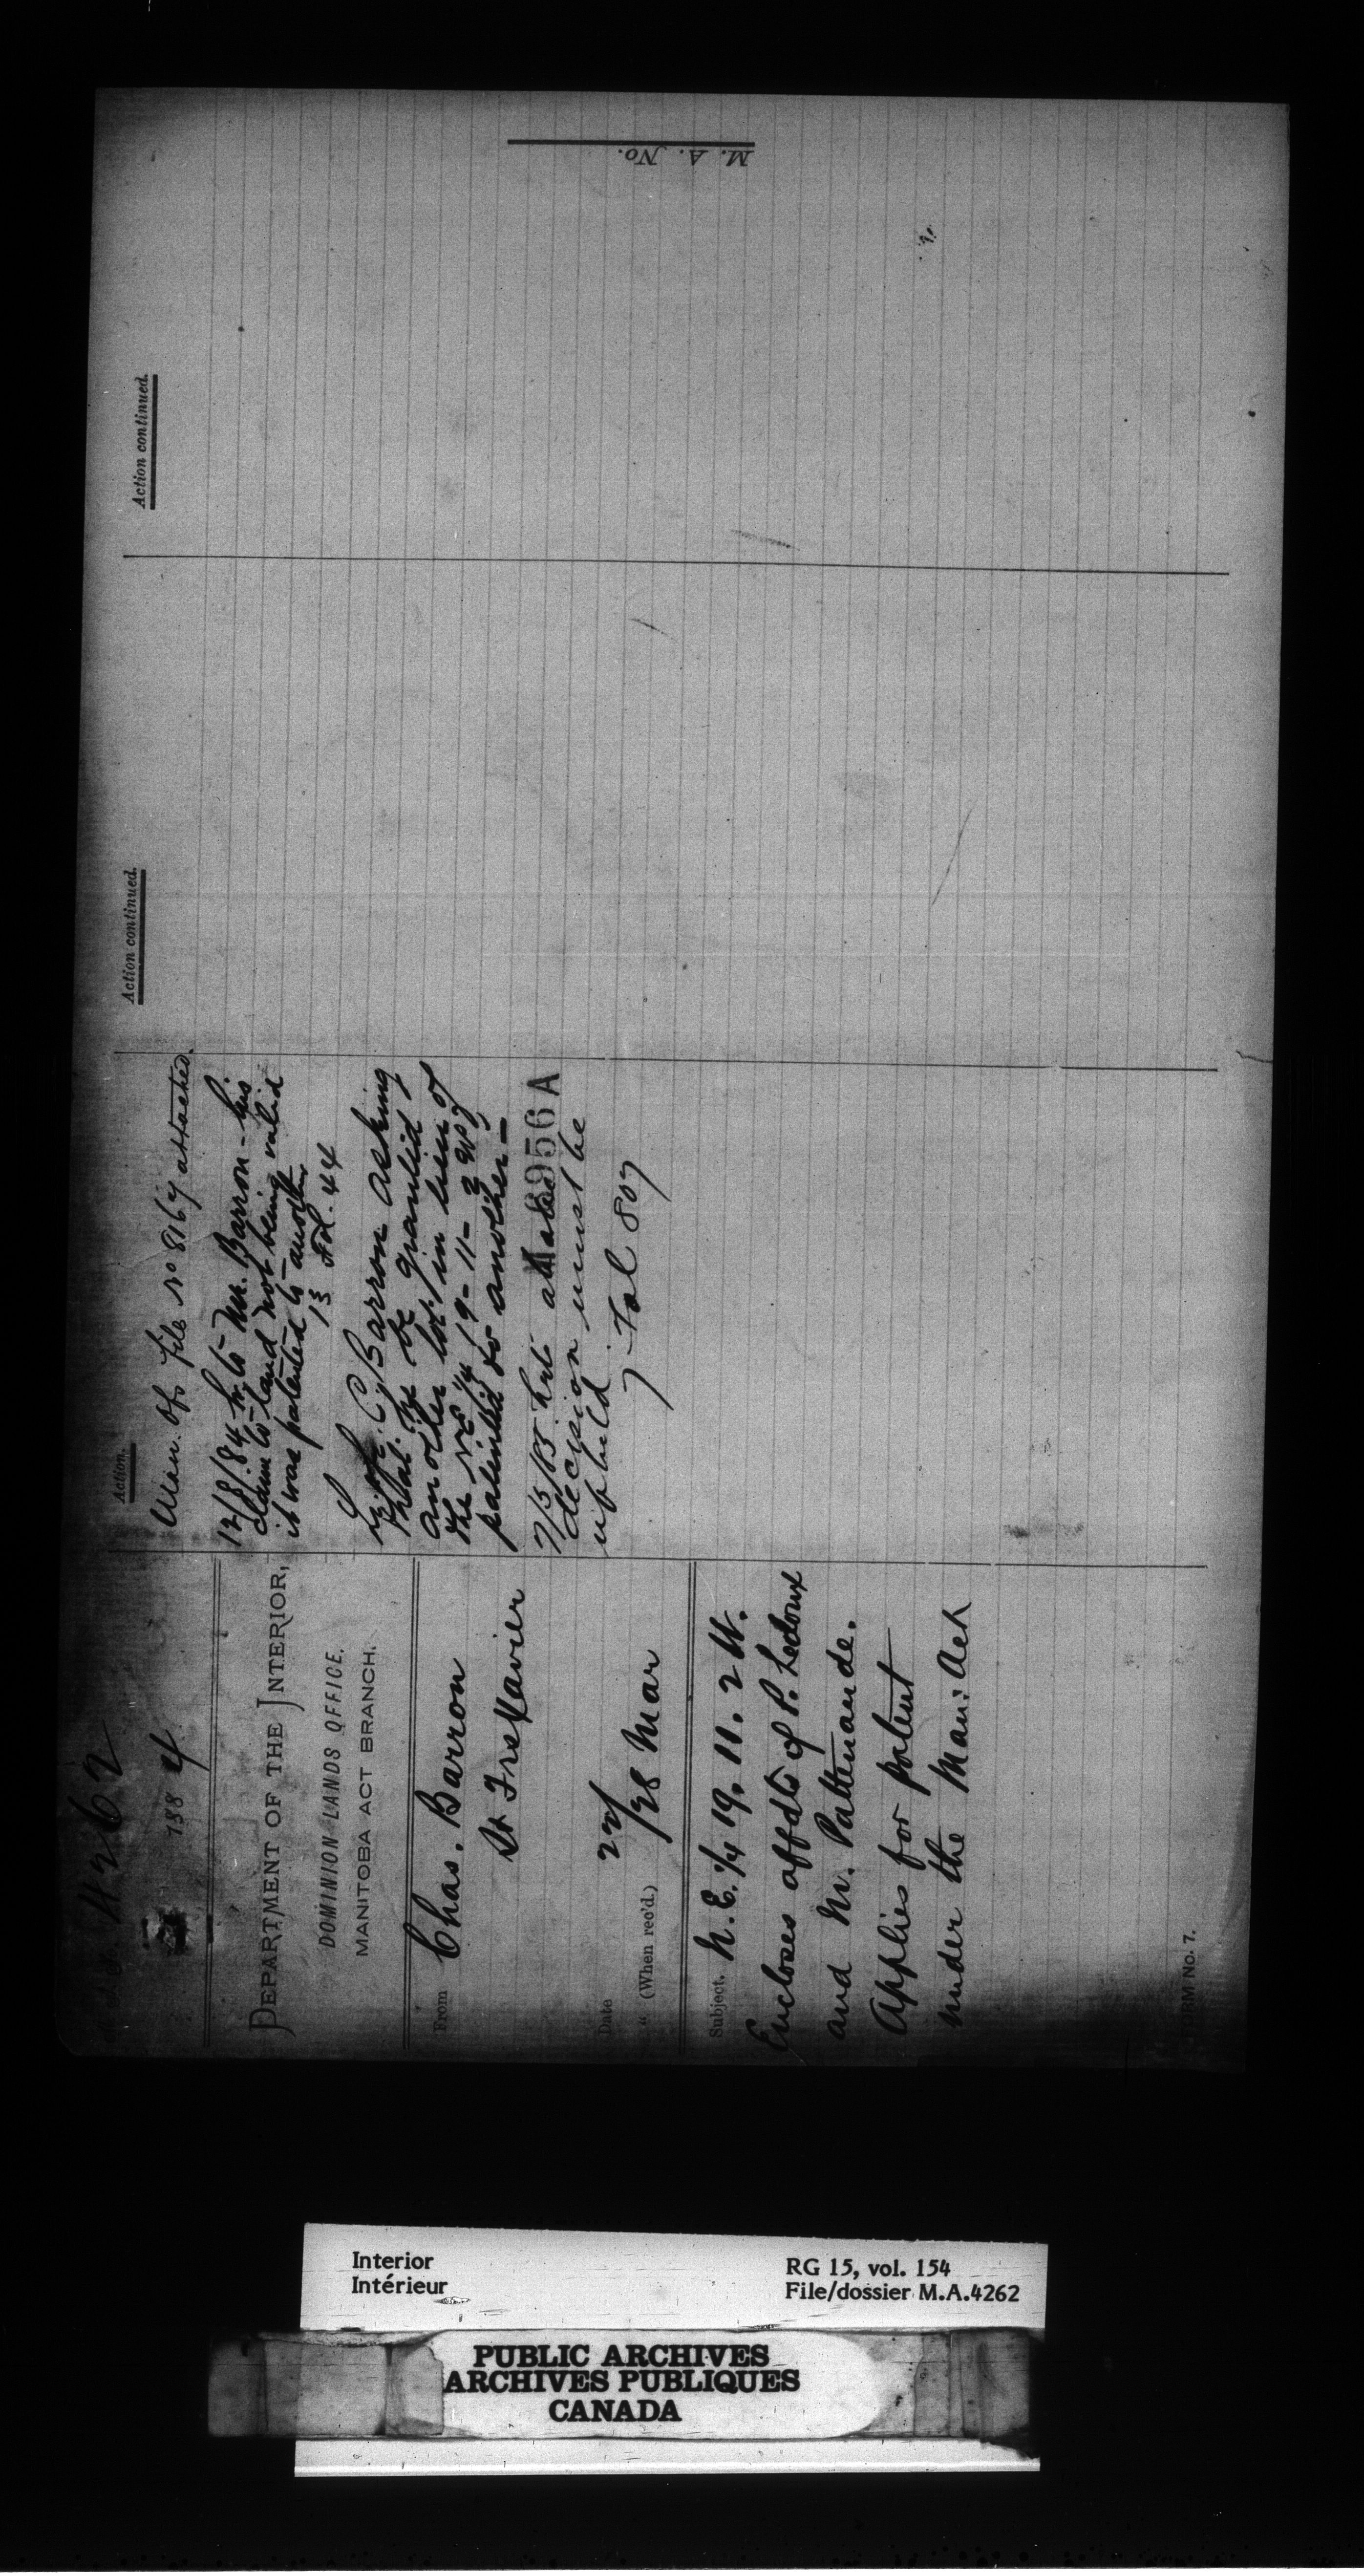 4262
188 4
DEPARTMENT OF THE INTERIOR,
DOMINION LANDS OFFICE.
MANITOBA ACT BRANCH.
From Chas. Barron
St Frs Xavier
Date 22/
" (When rec'd.) /28 Mar
Subject. N.E. 1/4 19. 11. 2 W.
Encloses affdts of P. Ledoux
and M. Pattenaude.
Applies for patent
under the Man: Act
FORM No. 7.
Action.
Mem. of file No 8167 attached.
12/8/84 to Mr. Barron - his
claim to land not being valid
it was patented to another
13 Fol. 44
C. Barron asking
that he be granted
another lot in lieu of
the NE 1/4 19-11-2 W of
patented to another -
8956 A
7/5/85 that
decision must be
upheld
7 - Fol 807
Action continued.
Action continued.
M. A. No.
Interior
Intérieur
RG 15, vol. 154
File/dossier M.A.4262
PUBLIC ARCHIVES
ARCHIVES PUBLIQUES
CANADA